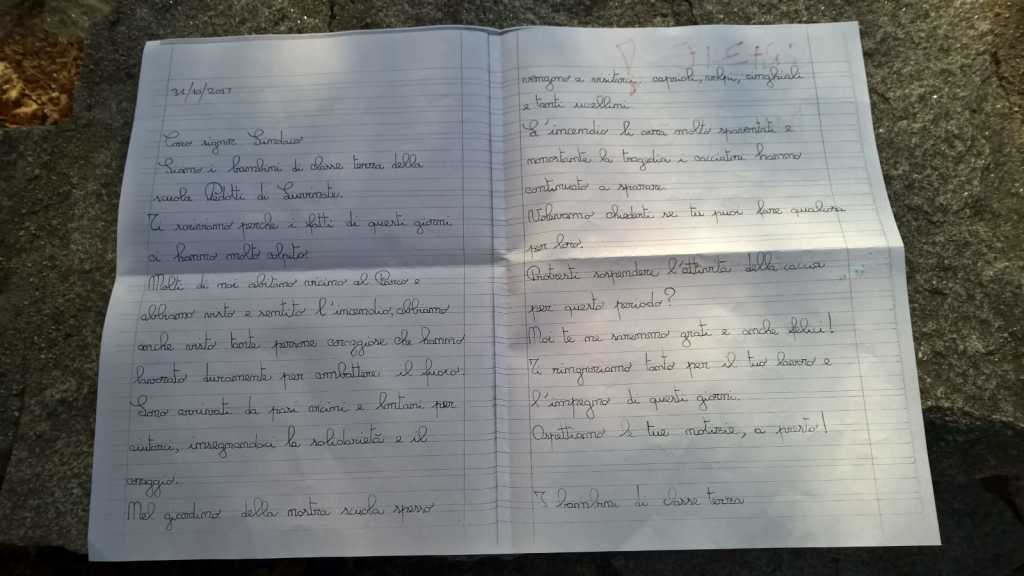 31/10/2017
Caro signor Sindaco
Siamo i bambini di classe terza della
scuola Pedotti di Luvinate.
Ti scriviamo perché i fatti di questi giorni
ci hanno molto colpito.
Molti di noi abitano vicino al Parco e
abbiamo visto e sentito l'incendio, abbiamo
anche visto tante persone coraggiose che hanno
lavorato duramente per combattere il fuoco.
Sono arrivati da paesi vicini e lontani per
aiutarci, insegnandoci la solidarietà e il
coraggio.
Nel giardino della nostra scuola spesso
vengono a visitarci caprioli, volpi, cinghiali
e tanti uccellini.
L'incendio li avrà molto spaventati e
nonostante la tragedia i cacciatori hanno
continuato a sparare.
Volevamo chiederti se tu puoi fare qualcosa
per loro.
Potresti sospendere l'attività della caccia
per questo periodo?
Noi te ne saremmo grati e anche felici!
Ti ringraziamo tanto per il tuo lavoro e
l'impegno di questi giorni.
Aspettiamo le tue notizie, a presto!
I bambini di classe terza